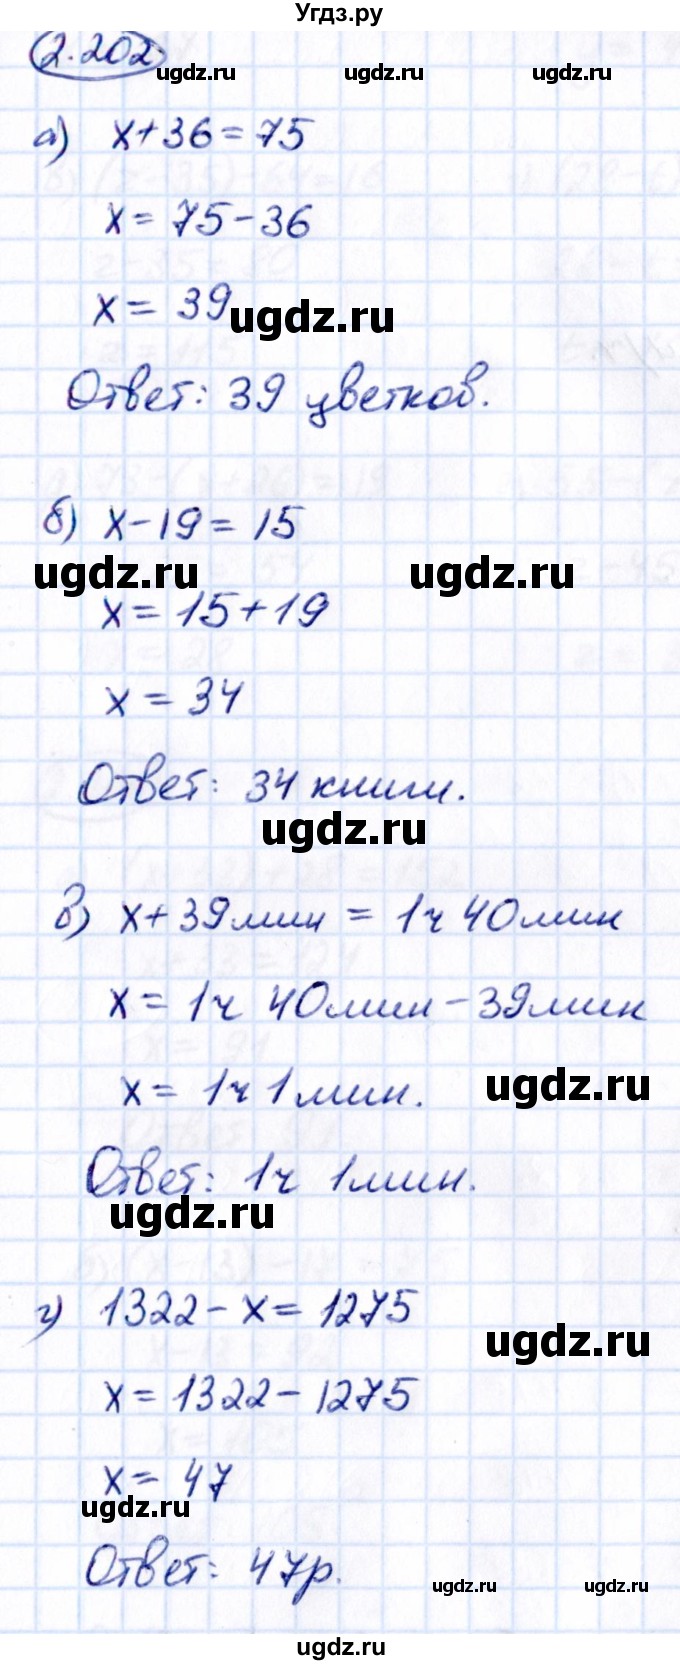 Угдз.ру
2.202
ugdz.ru ugdz.ru ugdz.ru
а) x+36=75
x=75-36
x=39
ugdz.ru
Ответ: 39 цветков.
б) x-19=15
ugdz.ru ugdz.ru
x=15+19
x=34
Ответ: 34 книги.
ugdz.ru
в) x+39мин=1ч 40мин
x=1ч 40мин-39мин
x=1ч 1мин.
ugdz.ru
Ответ: 1ч 1мин.
ugdz.ru
г) 1322-x=1275
ugdz.ru
x=1322-1275
x=47
ugdz.ru
Ответ: 47р.
ugdz.ru ugdz.ru
ugdz.ru